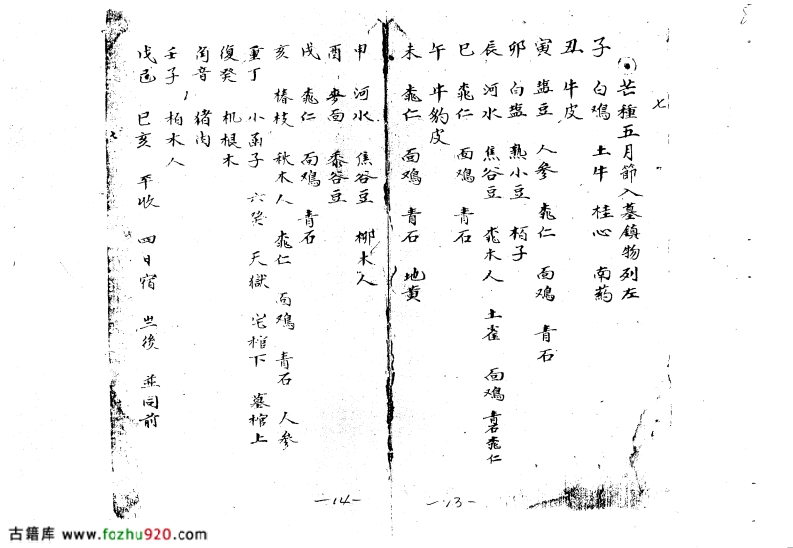 七
芒種五月節入墓鎮物列左
子 白鴆 土牛 桂心 南药
丑 牛皮
寅 盐豆 人參 桃仁 面鴆 青石
卯 白盐 熟小豆 栢子
辰 河水 焦谷豆 桃木人 土雀 面鴆 青石桃仁
巳 桃仁 面鴆 青石
午 牛豹皮
未 桃仁 面鸡 青石 地黄
-13-
申 河水 焦谷豆 柳木人
酉 麥面 黍谷豆
戌 桃仁 面鸡 青石
亥 椿枝 秋木人 桃仁 面鸡 青石 人參
重丁 小函子 六癸 天獄 宅棺下 墓棺上
復癸 机根木
角音 猪肉
壬子 柏木人
戊己 巳亥 平收 四日宿 後 並同前
-14-
古籍库 www.fozhu920.com